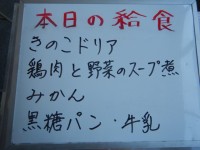 本日の給食
きのこドリア
鶏肉と野菜のスープ煮
みかん
黒糖パン・牛乳